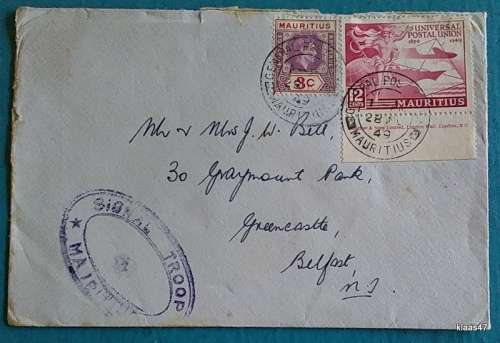 MAURITIUS
3c
UNIVERSAL
POSTAL UNION
12
CENTS
MAURITIUS
GENERAL POST
49
MAURITIUS
GENERAL POST
28
49
MAURITIUS
Mr & Mrs J. W. Bell,
30 Graymount Park,
Greencastle,
Belfast,
N.I.
SIGNAL TROOP
★ MAURITIUS
klaas47